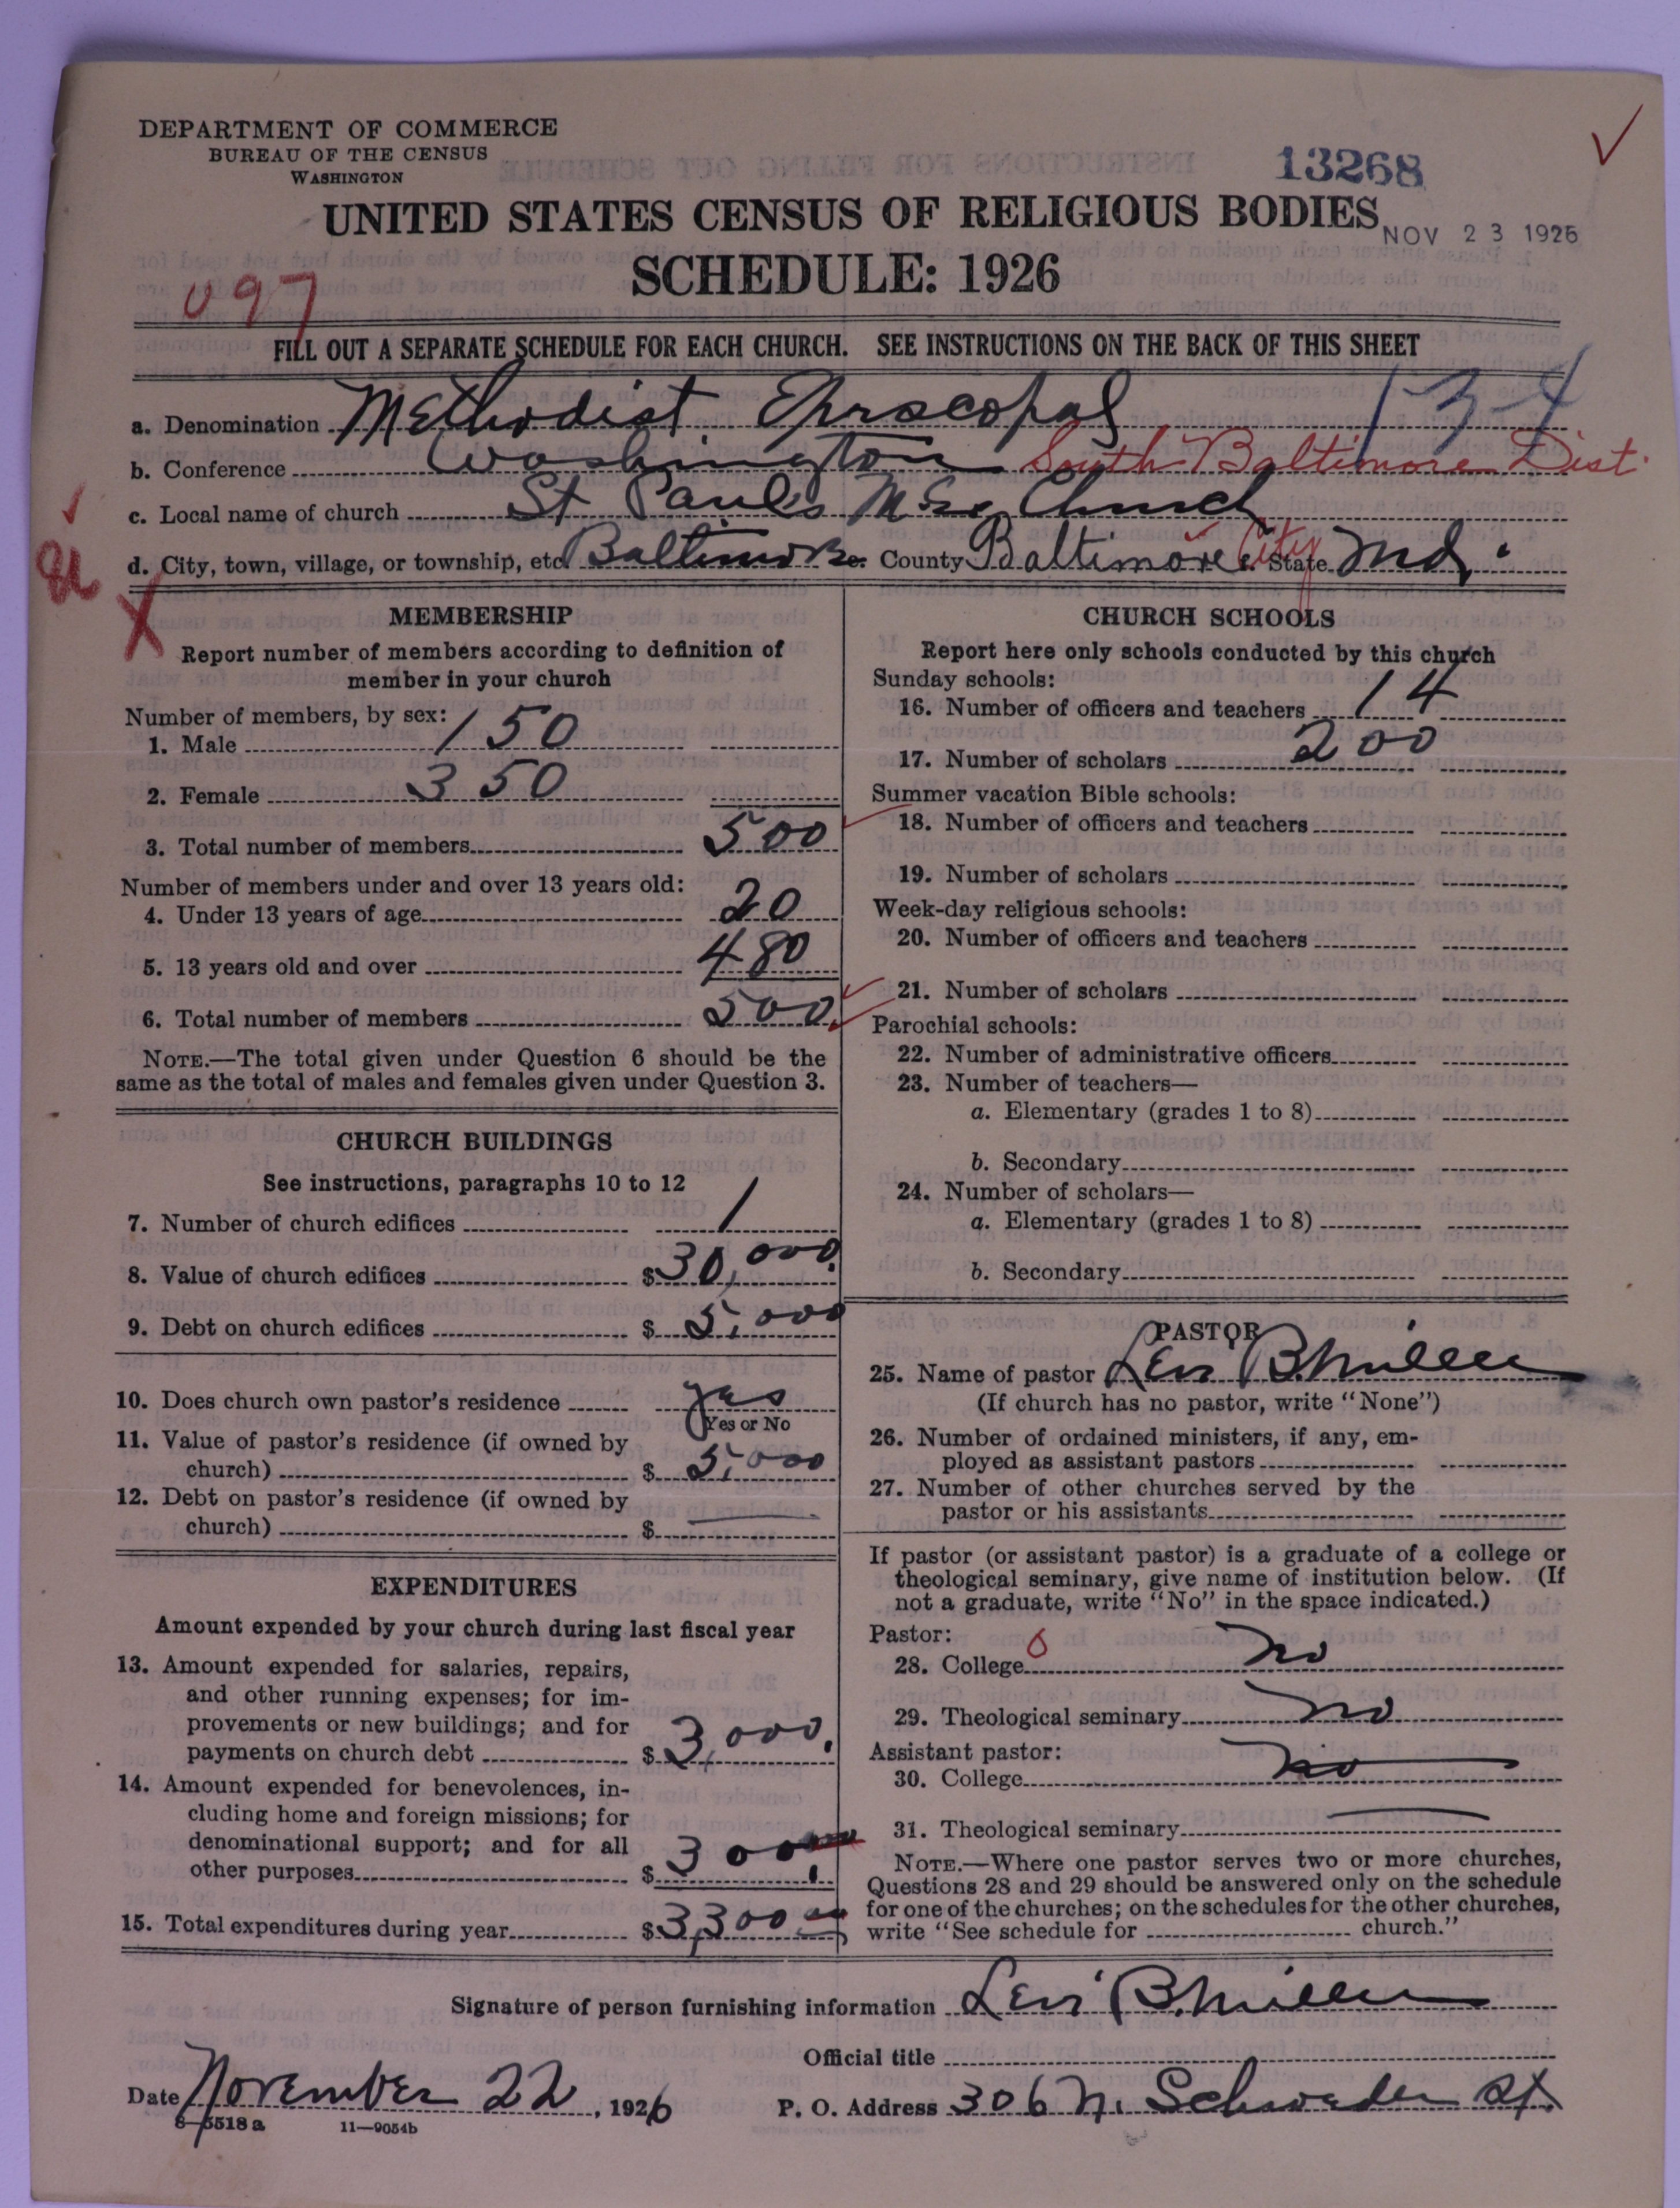 DEPARTMENT OF COMMERCE
BUREAU OF THE CENSUS
WASHINGTON
13268
UNITED STATES CENSUS OF RELIGIOUS BODIES
NOV 23 1926
SCHEDULE: 1926
097
FILL OUT A SEPARATE SCHEDULE FOR EACH CHURCH. SEE INSTRUCTIONS ON THE BACK OF THIS SHEET
a. Denomination Methodist Episcopal 134
b. Conference Washington South Baltimore Dist.
c. Local name of church St Paul's M.E. Church
d. City, town, village, or township, etc. Baltimore e. County Baltimore City f. State Md.
MEMBERSHIP
Report number of members according to definition of
member in your church
Number of members, by sex:
1. Male 150
2. Female 350
3. Total number of members 500
Number of members under and over 13 years old:
4. Under 13 years of age 20
5. 13 years old and over 480
6. Total number of members 500
NOTE.—The total given under Question 6 should be the
same as the total of males and females given under Question 3.
CHURCH BUILDINGS
See instructions, paragraphs 10 to 12
7. Number of church edifices 1
8. Value of church edifices $30,000.
9. Debt on church edifices $5,000
10. Does church own pastor's residence yes
Yes or No
11. Value of pastor's residence (if owned by
church) $5,000
12. Debt on pastor's residence (if owned by
church) $ —
EXPENDITURES
Amount expended by your church during last fiscal year
13. Amount expended for salaries, repairs,
and other running expenses; for im-
provements or new buildings; and for
payments on church debt $3,000.
14. Amount expended for benevolences, in-
cluding home and foreign missions; for
denominational support; and for all
other purposes $300
15. Total expenditures during year $3,300
CHURCH SCHOOLS
Report here only schools conducted by this church
Sunday schools:
16. Number of officers and teachers 14
17. Number of scholars 200
Summer vacation Bible schools:
18. Number of officers and teachers
19. Number of scholars
Week-day religious schools:
20. Number of officers and teachers
21. Number of scholars
Parochial schools:
22. Number of administrative officers
23. Number of teachers—
a. Elementary (grades 1 to 8)
b. Secondary
24. Number of scholars—
a. Elementary (grades 1 to 8)
b. Secondary
PASTOR
25. Name of pastor Levi B. Miller
(If church has no pastor, write "None")
26. Number of ordained ministers, if any, em-
ployed as assistant pastors
27. Number of other churches served by the
pastor or his assistants
If pastor (or assistant pastor) is a graduate of a college or
theological seminary, give name of institution below. (If
not a graduate, write "No" in the space indicated.)
Pastor:
28. College 0 no
29. Theological seminary no
Assistant pastor:
30. College no
31. Theological seminary —
NOTE.—Where one pastor serves two or more churches,
Questions 28 and 29 should be answered only on the schedule
for one of the churches; on the schedules for the other churches,
write "See schedule for church."
Signature of person furnishing information Levi B. Miller
Official title
Date November 22, 1926
P. O. Address 306 N. Schroeder St.
8—5518 a 11—9054b